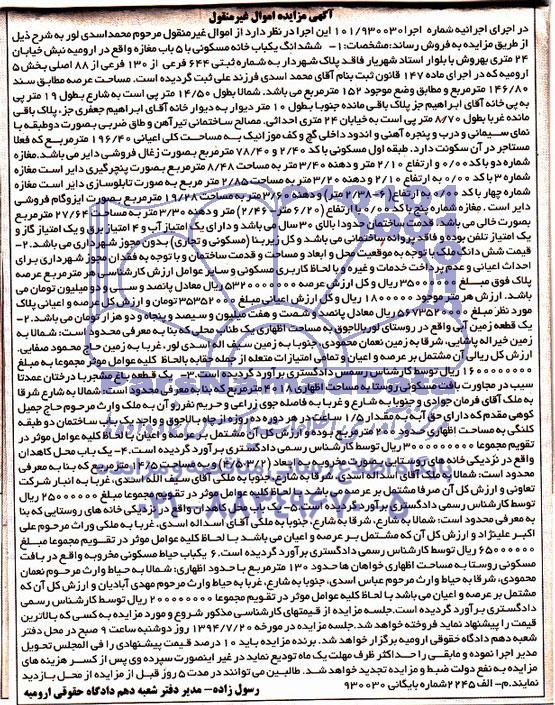 آگهی مزایده اموال غیرمنقول
در اجرای اجرائیه شماره اجرا ۱۰۱/۹۳۰۰۳۰ این اجرا در نظر دارد از اموال غیرمنقول مرحوم محمداسدی لور به شرح ذیل
از طریق مزایده به فروش رساند: مشخصات: ۱- ششدانگ یکباب خانه مسکونی با ۵ باب مغازه واقع در ارومیه نبش خیابان
۲۴ متری بهروش با بلوار استاد شهریار فاقد پلاک شهرداری به شماره ثبتی ۶۴۴ فرعی از ۱۳۰ فرعی از ۸۸ اصلی بخش ۵
ارومیه که در اجرای ماده ۱۴۷ قانون ثبت بنام آقای محمد اسدی فرزند علی ثبت گردیده است. مساحت عرصه مطابق سند
۱۴۶/۸۰ مترمربع و مطابق وضع موجود ۱۵۲ مترمربع می باشد. شمالا بطول ۱۴/۵۰ متر پی است به شارع بطول ۱۹ متر پی
به پی خانه آقای ابراهیم جز پلاک باقی مانده جنوبا بطول ۱۰ متر دیوار به دیوار خانه آقای ابراهیم جعفری جز، پلاک باقی
مانده غربا بطول ۸/۷۰ متر پی است به خیابان ۲۴ متری احداثی. مصالح ساختمانی تیرآهن و طاق ضربی بصورت دوطبقه با
نمای سیمانی و درب و پنجره آهنی و اندود داخلی گچ و کف موزائیک به مساحت کلی اعیانی ۱۹۶/۴۰ مترمربع که فعلا
مستاجر در آن سکونت دارد. طبقه اول مسکونی با کد ۲/۴۰ و ۷۸/۴۰ مترمربع بصورت زغال فروشی دایر می باشد. مغازه
شماره دو با کد ۰/۰۰ و ارتفاع ۲/۱۰ متر و دهنه ۳/۴۰ متر به مساحت ۸/۴۸ مترمربع بصورت پنچرگیری دایر است. مغازه
شماره ۳ با کد ۰/۰۰ به ارتفاع ۲/۱۰ متر و دهنه ۳/۲۰ متر به مساحت ۲/۸۵ مترمربع به صورت تابلوسازی دایر است. مغازه
شماره چهار با کد ۰/۰۰ به ارتفاع (۶-۲/۳۸ متر) و دهنه ۳/۶۰ متر به مساحت ۱۹/۲۸ مترمربع بصورت ایزوگام فروشی
دایر است. مغازه شماره پنج با کد ۰/۰۰ با ارتفاع (۶/۲۰ متر - ۲/۴۶) متر و دهنه ۳/۳۰ متر به مساحت ۲۷/۶۴ مترمربع
بصورت خالی می باشد. قدمت ساختمان حدودا بالای ۳۰ سال می باشد و دارای یک امتیاز آب و ۴ امتیاز برق و یک امتیاز گاز و
یک امتیاز تلفن بوده و فاقد پروانه ساختمانی می باشد و کل زیربنا (مسکونی و تجاری) بدون مجوز شهرداری می باشد. ۲-
قیمت شش دانگ ملک با توجه به موقعیت محل و ابعاد و مساحت و قدمت ساختمان و با توجه به فقدان مجوز شهرداری برای
احداث اعیانی و عدم پرداخت خدمات و غیره و با لحاظ کاربری مسکونی و سایر عوامل ارزش کارشناسی هر مترمربع عرصه
پلاک فوق مبلغ ریال و کل ارزش عرصه ۵۳۲۰۰۰۰۰۰۰ ریال معادل پانصد و سی و دو میلیون تومان می
باشد. ارزش هر متر موجود ۱۸۰۰۰۰۰ ریال و کل ارزش اعیانی مبلغ ۳۵۳۵۲۰۰۰۰ تومان و ارزش کل عرصه و اعیانی پلاک
مورد نظر مبلغ ریال معادل پانصد و شصت و هفت میلیون و سیصد و پنجاه و دو هزار تومان می باشد. ۲-
یک قطعه زمین آبی واقع در روستای لور بالاجوق به مساحت اظهاری یک طناب محلی که بنا به معرفی محدود است: شمالا به
زمین خیراله پاشایی، شرقا به زمین نعمان محمودی، جنوبا به زمین سیف اله اسدی لور، غربا به زمین حاج محمود صفایی.
ارزش کل ریالی آن مشتمل بر عرصه و اعیان و تمامی امتیازات متعلعه از جمله حقابه بالحاظ کلیه عوامل موثر مجموعا به مبلغ
۱۶۰۰۰۰۰۰۰ ریال توسط کارشناس رسمس دادگستری برآورد گردیده است. ۳- یک قطعه باغ مشجر با درختان عمدتا
سیب در مجاورت بافت مسکونی روستا به مساحت اظهاری ۴۰۱۸ مترمربع که بنا به معرفی محدود است: شمالا به شارع شرقا
به ملک آقای فرمان جوادی و جنوبا به شارع و غربا به فاصله جوی زراعی و حریم نفررو آن به ملک وارث مرحوم حاج جمیل
کوهی مقدم که دارای حق آبه به مقدار ۱/۵ ساعت در هر دوره ده روزه از چاه بالاجوق و واجد یک باب ساختمان دو طبقه
کلنگی به مساحت اظهاری مترمربع بوده و ارزش کل آن مشتمل بر عرصه و اعیان با لحاظ کلیه عوامل موثر در
تقویم مجموعا ۳۰۰۰۰۰۰۰۰۰ ریال توسط کارشناس رسمی دادگستری برآورد گردیده است. ۴- یک باب محل کاهدان
واقع در نزدیکی خانه های روستایی بصورت مخروبه به ابعاد مترمربع که بنا به معرفی
محدود است: شمالا به ملک آقای اسدی، شرقا به شارع، جنوبا به ملکی آقای سیف الله اسدی، غربا به انبار شرکت
تعاونی و ارزش کل آن صرفا مشتمل بر عرصه می باشد با لحاظ کلیه عوامل موثر در تقویم مجموعا مبلغ ۲۵۰۰۰۰۰۰ ریال
توسط کارشناس رسمی دادگستری برآورد گردیده است. ۵- یک باب کاهدان واقع در نزدیکی خانه های روستایی که بنا
به معرفی محدود است: شمالا به شارع، شرقا به شارع، جنوبا به ملکی آقای اسداله اسدی، غربا به ملکی وراث مرحوم علی
اکبر علینژاد و ارزش کل آن که مشتمل بر عرصه و اعیان می باشد با لحاظ کلیه عوامل موثر در تقویم مجموعا مبلغ
۶۵۰۰۰۰۰۰ ریال توسط کارشناس رسمی دادگستری برآورد گردیده است. ۶ یکباب حیاط مسکونی مخروبه واقع در بافت
مسکونی روستا به مساحت اظهاری خواهان ها حدود ۱۳۰ مترمربع با حدود اظهاری: شمالا به حیاط وارث مرحوم نعمان
محمودی، شرقا به حیاط وارث مرحوم عباس اسدی، جنوبا به شارع، غربا به حیاط وارث مرحوم مهدی آبادیان و ارزش کل آن که
مشتمل بر عرصه و اعیان می باشد با لحاظ کلیه عوامل موثر در تقویم مجموعا ۲۰۰۰۰۰۰۰۰ ریال توسط کارشناس رسمی
دادگستری برآورد گردیده است. جلسه مزایده از قیمتهای کارشناسی مذکور شروع و مورد مزایده به کسی که بالاترین
قیمت را پیشنهاد نماید فروخته خواهد شد. جلسه مزایده در مورخه ۱۳۹۴/۷/۲۰ روز دوشنبه ساعت ۹ صبح در محل دفتر
شعبه دهم دادگاه حقوقی ارومیه برگزار خواهد شد. برنده مزایده باید ۱۰ درصد قیمت پیشنهادی را فی المجلس تحویل
مدیر اجرا نموده و مابقی را حداکثر ظرف مهلت یک ماه تودیع نماید در غیر اینصورت سپرده وی پس از کسر هزینه های
مزایده به نفع دولت ضبط و مزایده تجدید خواهد شد. طالبین می توانند در مدت ۵ روز قبل از مزایده از محل بازدید
نمایند. م-الف ۲۲۴۵ شماره بایگانی ۹۳۰۰۳۰
رسول زاده- مدیر دفتر شعبه دهم دادگاه حقوقی ارومیه
۰۲۱-۸۸۳۴۹۶۷۰-۵